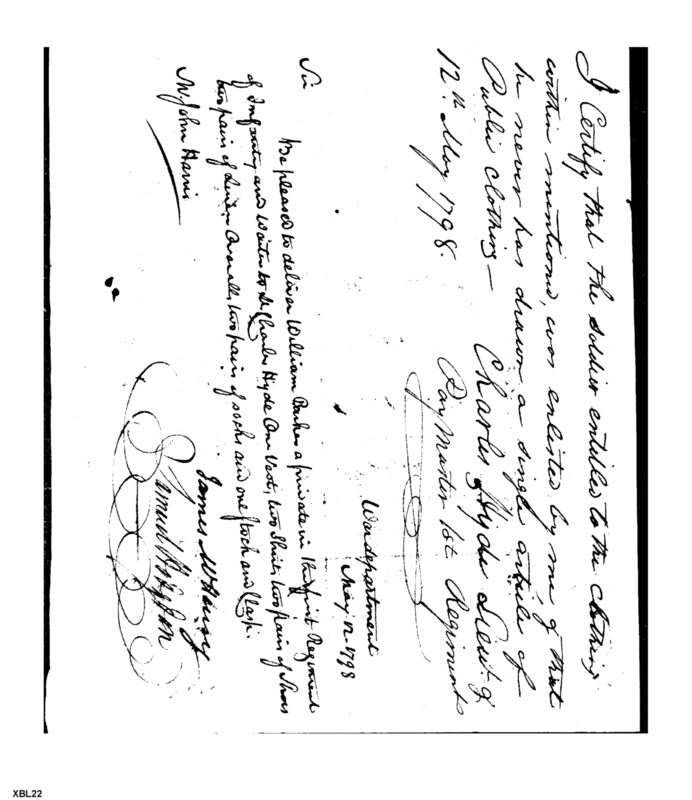 I Certify that the soldier entitled to the clothing
within mentioned, was enlisted by me & that
he never has drawn a single article of
Public clothing —
12th. May 1798.
Charles Hyde Lieut &
Pay Master 1st Regiment
War department
May 12 1798
Sir
Be pleased to deliver William Parker a private in the first Regiment
of Infantry and Waiter to Lt Charles Hyde One Vest, two Shirts, two pair of Shoes
two pair of Linen Overalls, two pair of socks and one stock and Clasp.
James McHenry
Mr John Harris
Samuel Hodgdon
XBL22